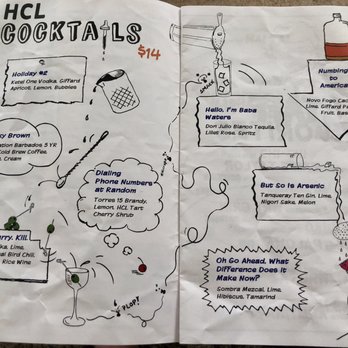 HCL
COCKTAILS
$14
Holiday #2
Ketel One Vodka, Giffard
Apricot, Lemon, Bubbles
Brown
Barbados 5 YR
Cold Brew Coffee,
Cream
Dialing
Phone Numbers
at Random
Torres 15 Brandy,
Lemon, HCL Tart
Cherry Shrub
Kill.
Lime,
Bird Chili,
Rice Wine
PLOP!
Hello, I'm Baba
Waters
Don Julio Blanco Tequila,
Lillet Rose, Spritz
Numbing
to
America
Novo Fogo
Lime, Giffard
Fruit,
But So Is Arsenic
Tanqueray Ten Gin, Lime,
Nigori Sake, Melon
Oh Go Ahead, What
Difference Does It
Make Now?
Sombra Mezcal, Lime,
Hibiscus, Tamarind